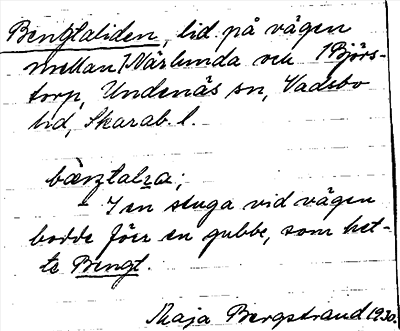 Bengtaliden, lid på vägen
mellan 1 Närlunda och 1 Björs-
torp, Undenäs sn, Vadsbo
hd, Skarab. l.
I en stuga vid vägen
bodde förr en gubbe, som het-
te Bengt.
Maja Bergstrand 1930.